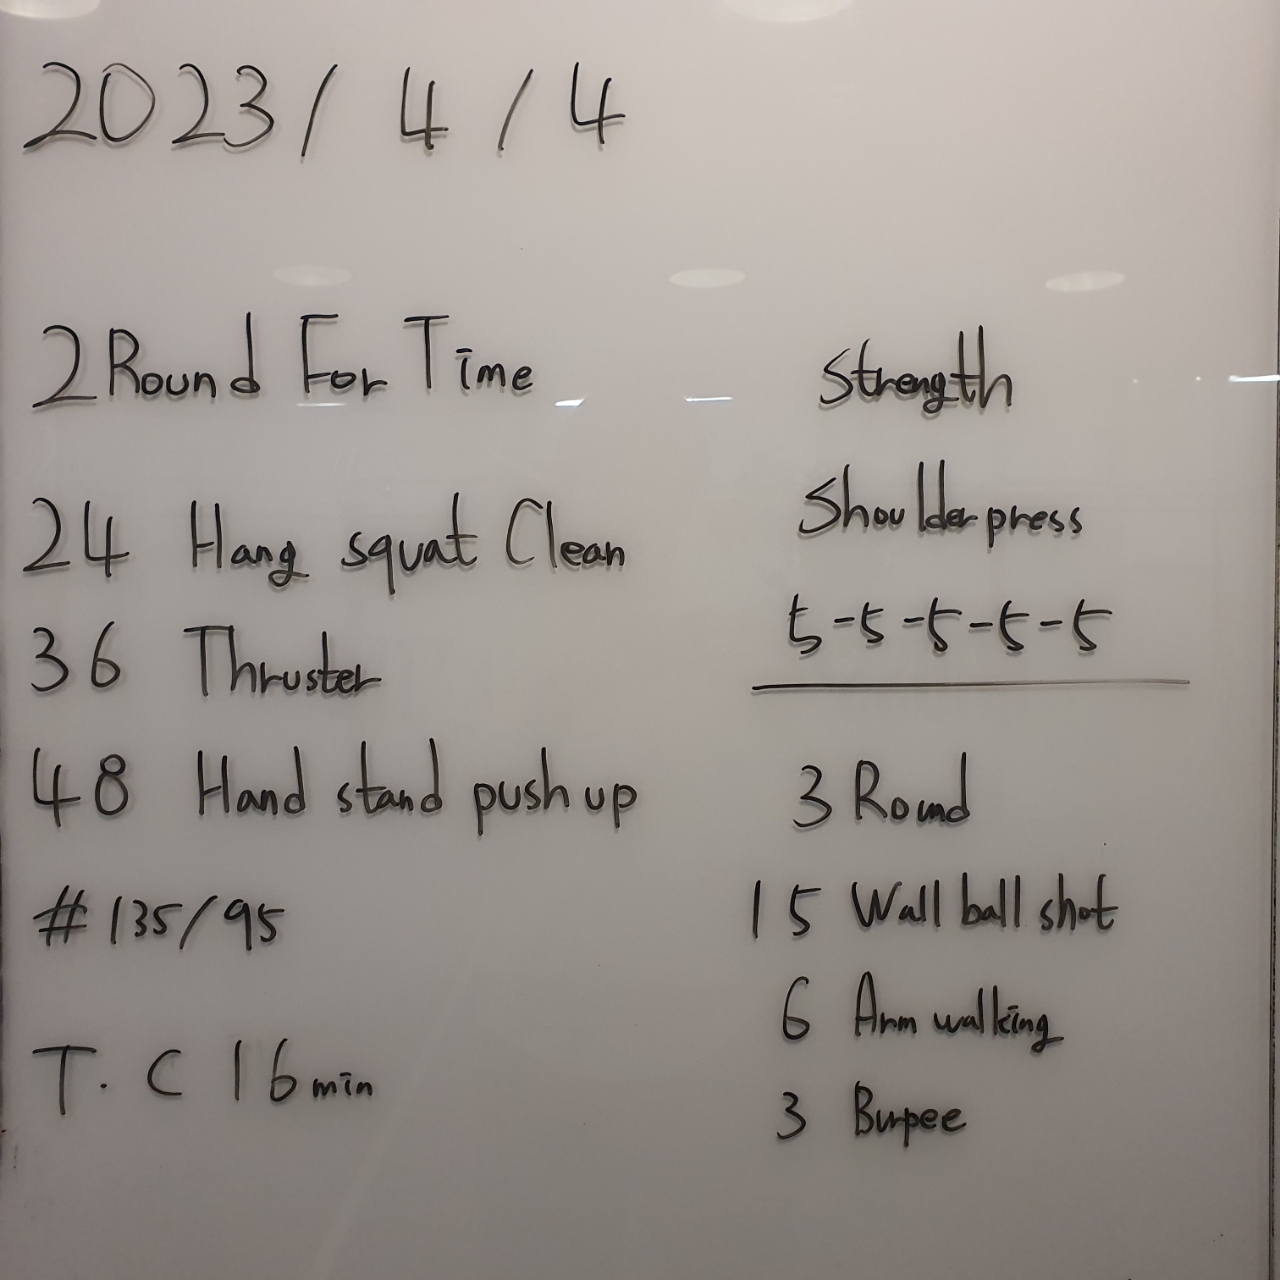 2023/4/4
2Round For Time
24 Hang squat Clean
36 Thruster
48 Hand stand push up
#135/95
T.C 16min
Strength
Shoulder press
5-5-5-5-5
3 Round
15 Wall ball shot
6 Arm walking
3 Burpee